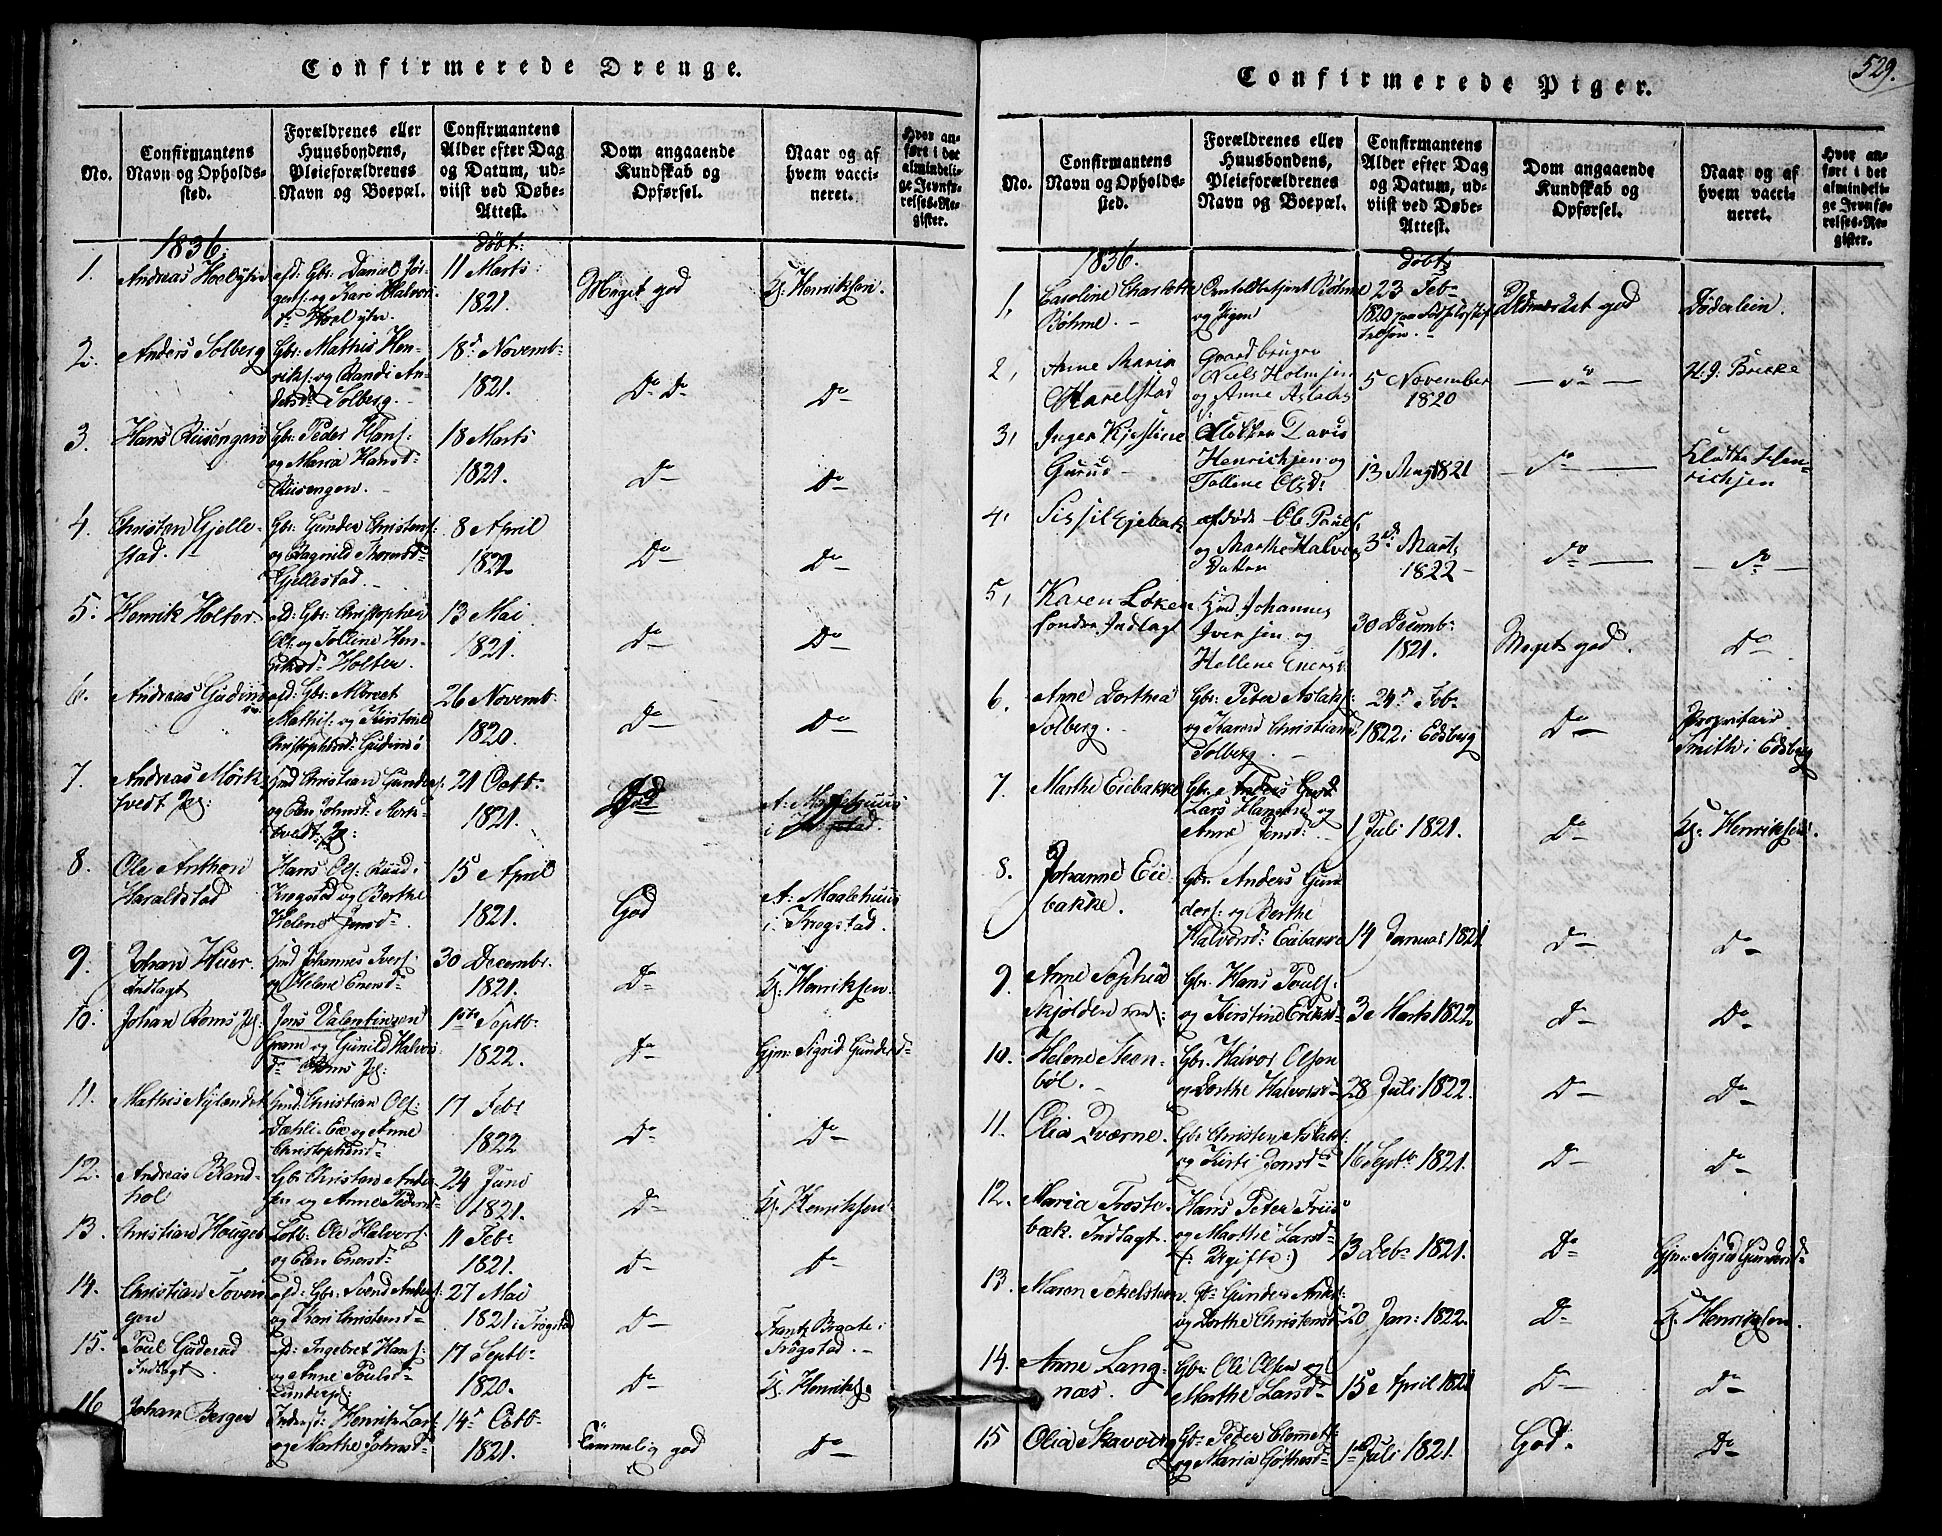 Confirmerede Drenge.
No.
Confirmantens
Navn og Opholds-
sted.
Forældrenes eller
Huusbondens,
Pleieforældrenes
Navn og Boepæl.
Confirmantens
Alder efter Dag
og Datum, ud-
viist ved Døbe-
Attest.
Dom angaaende
Kundskab og
Opførsel.
Naar og af
hvem vacci-
neret.
Hvor an-
ført i det
almindeli-
ge Jevnfø-
relses-Re-
gister.
1836.
døbt:
1.
Andreas Hoelytre
afd: Gbr: Daniel Jør-
gens: og Kari Halvors
dr Hoel ytre.
11 Marts
1821.
Meget god
Kl: Henriksen.
2.
Anders Solberg
Gbr: Mathis Hen-
riks: og Randi An-
dersdr Solberg.
18de Novemb:
1821.
Do Do
Do
3.
Hans Riisengen
Gbr: Peder Hans:
og Maria Hansdr
Riisengen.
18 Marts
1821.
Do
Do
4.
Christian Gjelle-
stad.
Gbr: Gunder Christens:
og Ragnild Thomsdr
Gjellestad.
8 April
1822
Do
Do
5.
Henrik Holter
afd: Gbr: Christopher
Ols: og Tolline Hen-
riksdr Holter.
13 Mai
1821.
Do
Do
6.
Andreas Gudim
afd: Gbr: Albret
Mathis: og Kirstine
Christophersdr: Gudim
26 Novemb:
1820.
Do
Do
7.
Andreas Mørk-
tvedt Pl:
Hmd Christian Gunders:
og Elen Johnsdr Mørk-
tvedt Pl:
21 Octb:
1821.
God
A: Maalehuus
i Trøgstad.
8.
Ole Anthon
Haraldstad
Hans Ols: Ruud i
Trøgstad og Berthe
Helene Jensdr
15 April
1821.
God
A: Maalehuus
i Trøgstad.
9.
Johan Huer.
Indlagt
Hmd Johannes Ivers:
og Helene Enersdr
30 Decembr.
1821.
Do
Kl: Henriksen
10.
Johan Roms Pl:
Jens Valentinsen
Gram og Gunild Halvors
dr Roms Pl:
1ste Septb:
1822.
Do
Gjm: Sigrid Gundersdr
11.
Mathis Nylandet
Hmd: Christian Ols:
Dæhli-Eie og Anne
Christophersdr
17 Febr
1822
Do
Do
12.
Andreas Bland-
hol
Gbr Christen Ander-
sen og Anne Pedersdr
24 Juni
1821.
Do
Kl: Henriksen
13.
Christian Houger
Ole Halvors:
og Elen Enersdr
11 Febr
1821.
Do
Do
14.
Christian Toven-
gen
afd: Gbr: Svend Anders:
og Kari Christensdr
27 Mai
1821 i Trøgstad
Do
Frantz Braate i
Trøgstad.
15.
Poul Guderud
Indlagt
afd: Ingebret Hans:
og Anne Poulsdr
17 Septb:
1820.
Do
Kl: Henriks:
16
Johan Berger
Inderst: Henrik Lars:
og Marthe Johnsdr
14de Octb:
1821.
Temmelig god
Do
529.
Confirmerede Piger.
No.
Confirmantens
Navn og Opholds-
sted.
Forældrenes eller
Huusbondens,
Pleieforældrenes
Navn og Boepæl.
Confirmantens
Alder efter Dag
og Datum, ud-
viist ved Døbe-
Attest.
Dom angaaende
Kundskab og
Opførsel.
Naar og af
hvem vacci-
neret.
Hvor an-
ført i det
almindeli-
ge Jevnfø-
relses-Re-
gister.
1836.
døbt
1,
Caroline Charlotte
Bøhme.
Bøhme
og Pigen
23 Feb:
1820
Udmærket god
Døderlein.
2,
Anne Maria
Harelstad
Gaardbruger
Niels Holmsen
og Anne Aslachs
5 November
1820
Do
H. J. Brekke
3,
Inger Kjestine
Gurud
Klokker Davis
Henrichsen og
Tollene Olsdr
13 May 1821
Do
Klokker Hen-
richsen
4,
Sissil Ejebak
afdøde Ole Pauls:
og Marthe Halvors
Datter
3de Marts
1822
Do
Do
5,
Karen Løken
søndre Indlagt
Hmd Johannes
Iversen og
Hellene Enersdr
30 Decemb:
1821.
Meget god.
Do
6.
Anne Dorthea
Solberg.
Gbr: Peter Aslaks:
og Karen Christiansdr
Solberg.
24de Feb:
1822 i Edsberg
Do
Proprietair
Smith i Edsberg
7.
Marthe Eiebakke
Gbr. Anders Gund
Lars Hansen og
Anne Jensdr
1 Juli 1821.
Do
Kl: Henriksen.
8.
Johanne Eie-
bakke.
Gbr. Anders Gun-
ders: og Berthe
Halvorsdr Eiebakke
14 Januar 1821
Do
Do
9.
Anne Sophia
Skjolden
Gbr. Hans Pouls:
og Kirstine Eriksdr
3e Marts 1822
Do
Do
10.
Helene Steen-
bøl.
Gbr. Halvor Olsen
og Dorthe Halvorsdr
28 Juli 1822.
Do
Do
11.
Olia Kværne.
Gbr Christen Aslaks:
og Kirsti Jensdr
16 Septb: 1821.
Do
Do
12.
Maria Froste-
bæk. Indlagt.
Hans Peter Friis
og Marthe Larsdr
(: Ugifte:)
13 Debr 1821.
Do
Gjm: Sigrid Gundersdr
13.
Maren Sekelsten
Gbr Gunder Anders:
og Dorthe Christensdr
20 Jan: 1822.
Do
Kl: Henriksen.
14.
Anne Lang-
næs.
Gbr: Ole Olsen og
Marthe Larsdr
15e April 1821
Do
Do
15
Olia Skavoug
Gbr Peder Clemets:
og Maria
1ste Juli 1821.
God.
Do